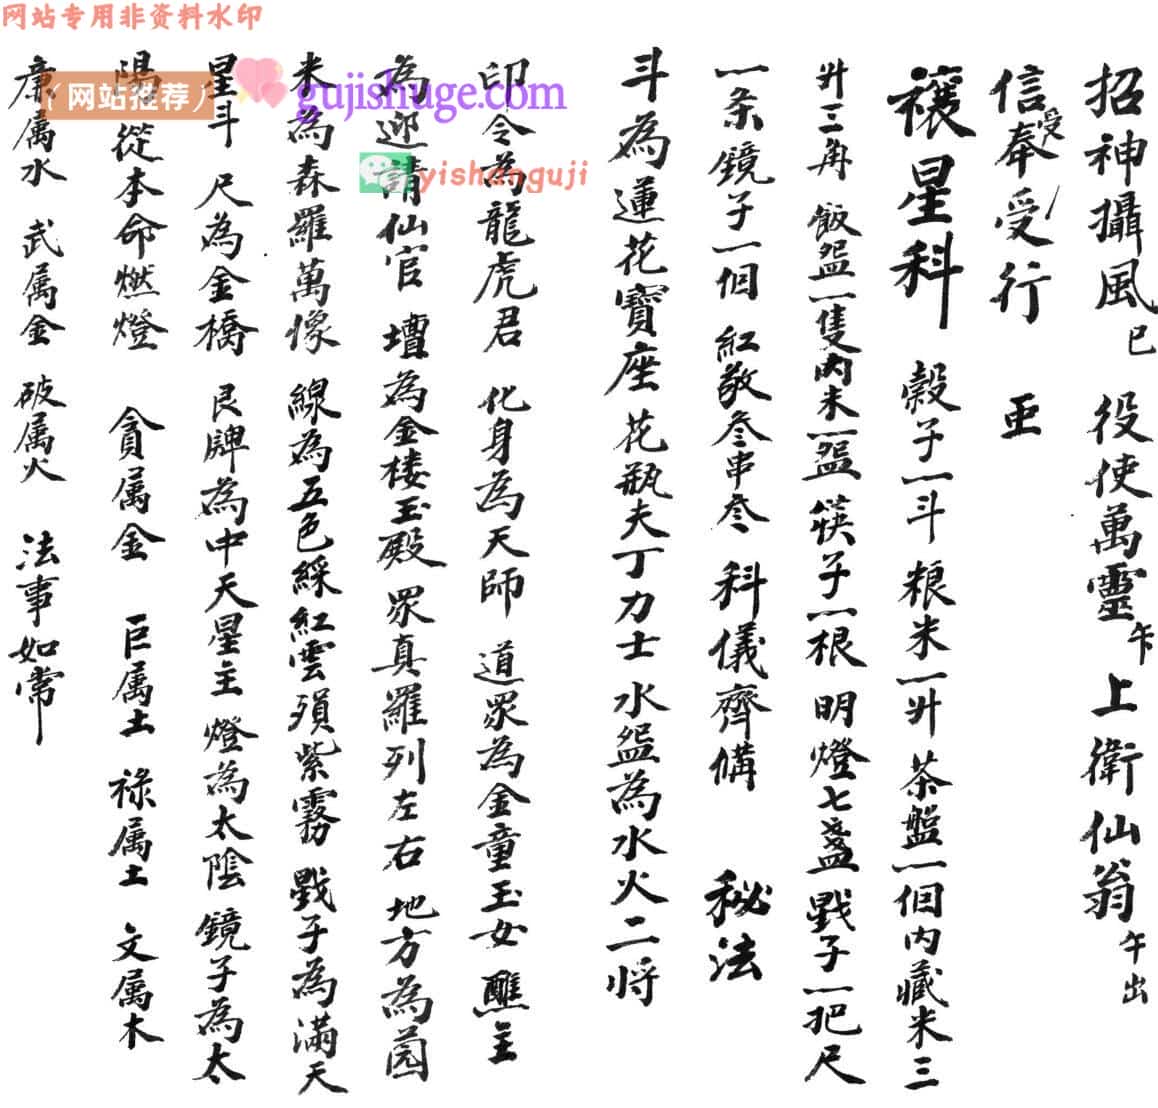 网站专用非资料水印
(网站推荐)
gujishuge.com
yishanguji
招神攝風巳 役使萬靈午 上衛仙翁午出
信受奉受行 亜
禳星科 穀子一斗 粮米一升 茶盤一個内藏米三
升三角 飯盌一隻内米一盌 筷子一根 明燈七盞 戥子一把 尺
一条 鏡子一個 紅敬叁串叁 科儀齊備 秘法
斗為蓮花寶座 花瓶夫丁力士 水盌為水火二将
印令為龍虎君 化身為天師 道眾為金童玉女 醮主
為迎請仙官 壇為金楼玉殿 眾真羅列左右 地方為园
米為森羅萬像 線為五色綵紅雲 紫霧 戥子為滿天
星斗 尺為金橋 艮牌為中天星主 燈為太陰 鏡子為太
陽 從本命燃燈 貪属金 巨属土 祿属土 文属木
廉属水 武属金 破属火 法事如常